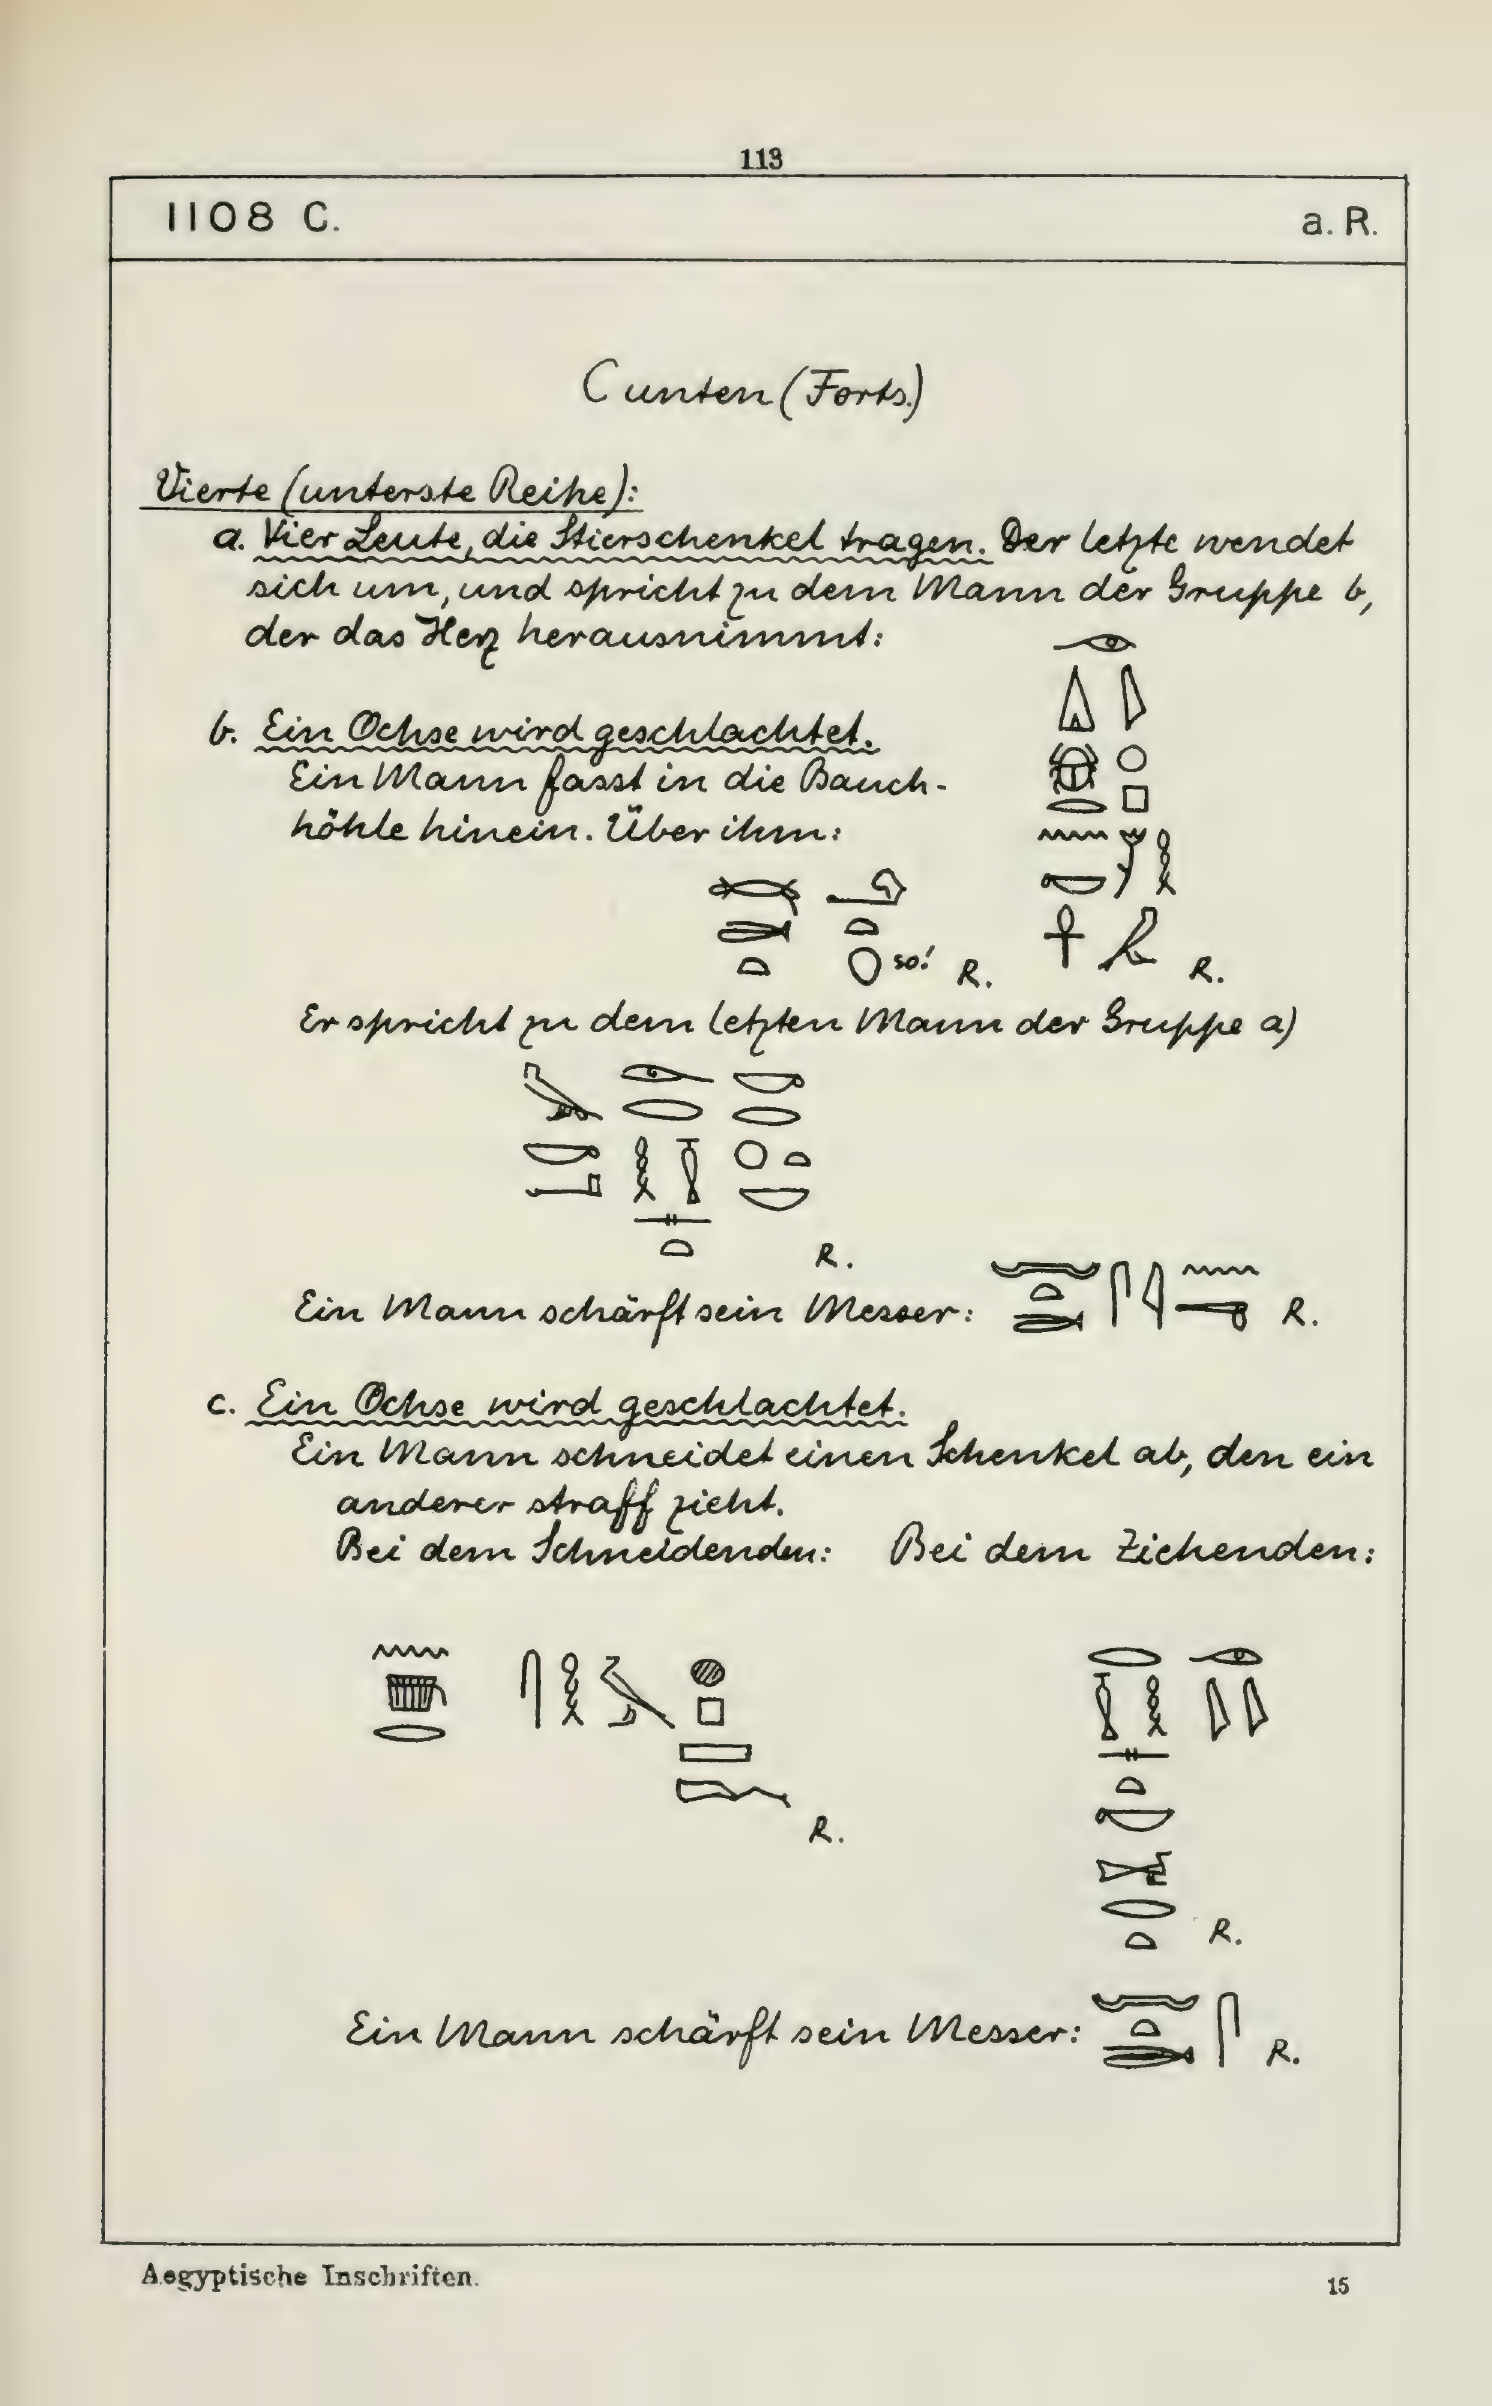 113
1108 C. a. R.
C unten (Forts.)
Vierte (unterste Reihe):
a. Vier Leute, die Stierschenkel tragen. Der letzte wendet
sich um, und spricht zu dem Mann der Gruppe b,
der das Herz herausnimmt:
b. Ein Ochse wird geschlachtet.
Ein Mann fasst in die Bauch-
höhle hinein. Über ihm:
so! R. R.
Er spricht zu dem letzten Mann der Gruppe a)
R.
Ein Mann schärft sein Messer: R.
c. Ein Ochse wird geschlachtet.
Ein Mann schneidet einen Schenkel ab, den ein
anderer straff zieht.
Bei dem Schneidenden: Bei dem Ziehenden:
R.
R.
Ein Mann schärft sein Messer: R.
Aegyptische Inschriften. 15